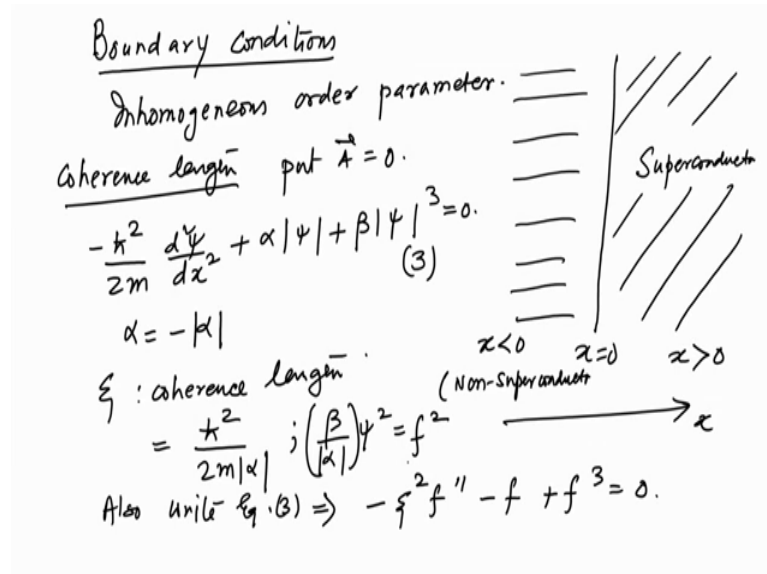 Boundary Conditions
Inhomogeneous order parameter.
Coherence length put A⃗ = 0.
-ħ²/2m d²ψ/dx² + α|ψ| + β|ψ|³ = 0.
(3)
α = -|α|
ξ : coherence length
= ħ²/2m|α| ; (β/|α|)ψ² = f²
Also write Eq.(3) ⇒ -ξ²f'' - f + f³ = 0.
Superconductor
x<0 x=0 x>0
(Non-Superconductor
x